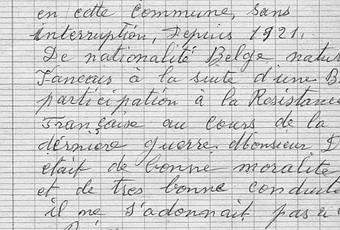 en cette commune, sans
interruption, Depuis 1921.
De nationalité Belge natur
Francais à la suite d'une B
participation à la Resistance
Française au cours de la
dernière guerre Monsieur D
était de bonne moralité
et de tres bonne conduite
il ne s'adonnait pas à